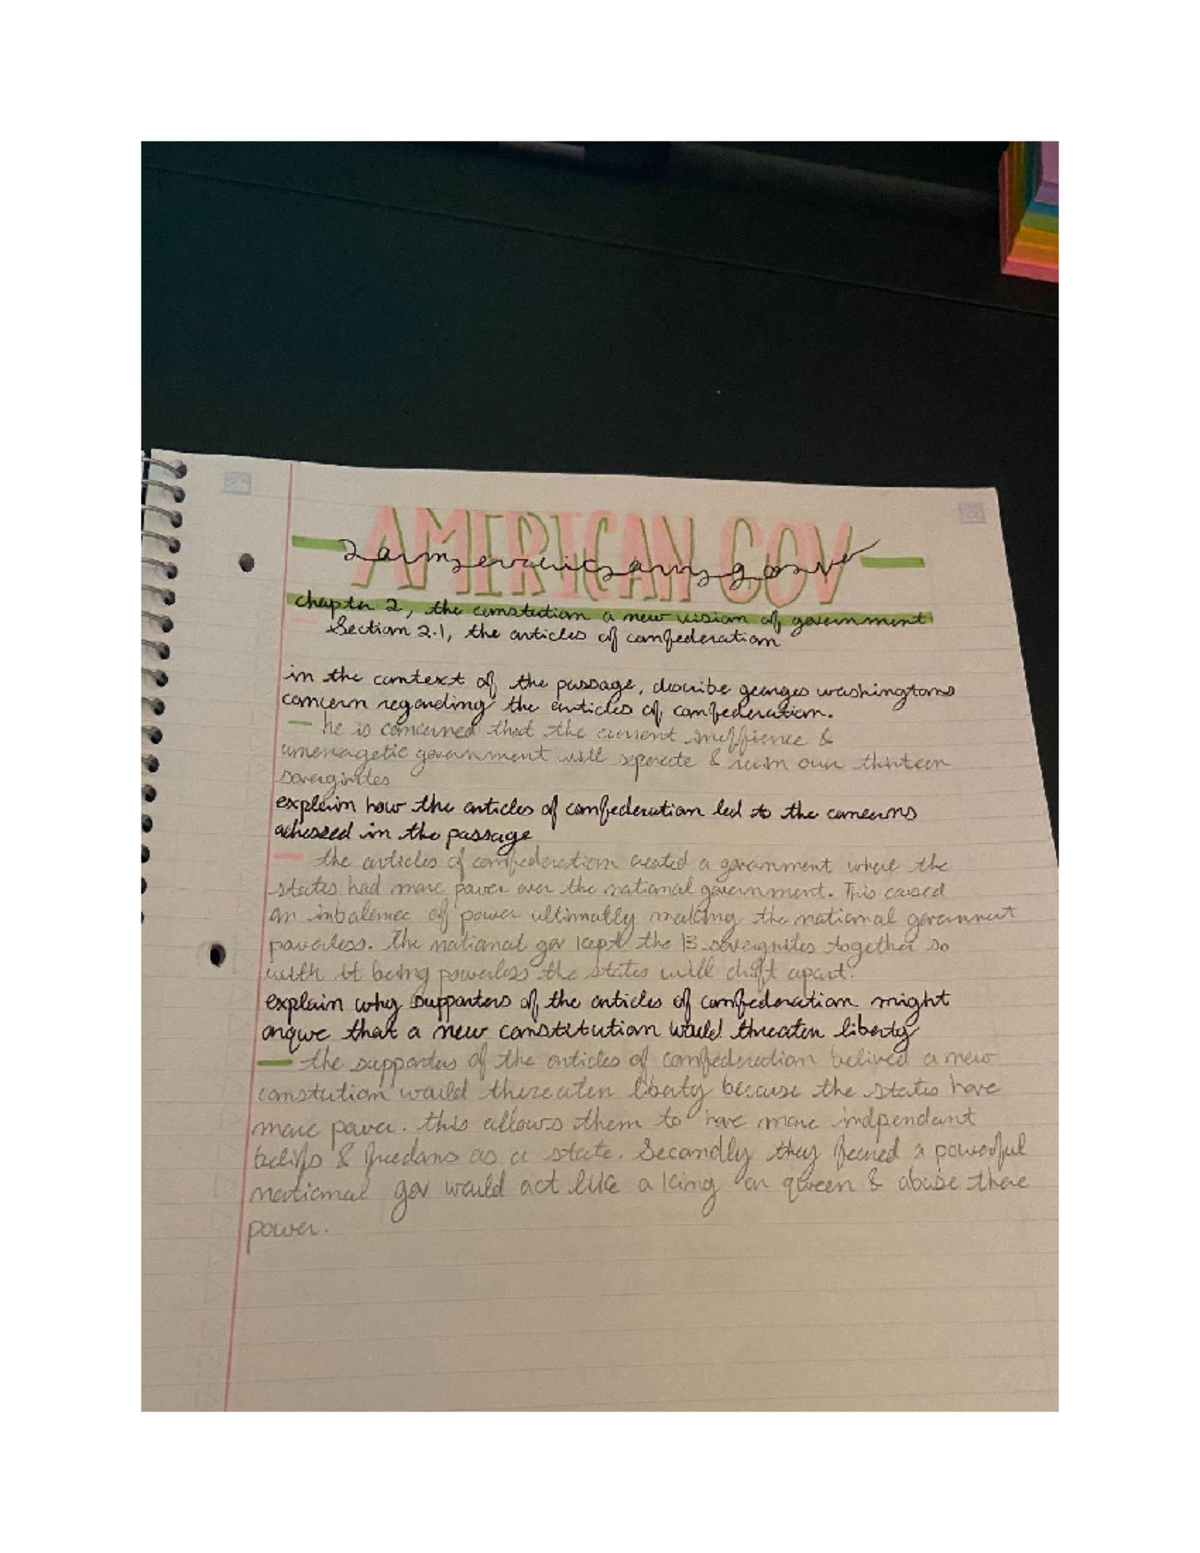 AMERICAN GOV
chapter 2, the constution a new vision of government
Section 2.1, the articles of confederation
in the context of the passage, describe georges washingtons
concern regarding the articles of confederation.
he is concerned that the current &
government will seperate & ruin our thirteen
explain how the articles of confederation led to the concerns
in the passage
the articles of confederation created a government where the
states had more power over the national government. This caused
an inbalence of power ultimatly making the national
powerless. The national gov kept the 13 soveignites together so
with it being powerless the states will drift apart.
explain why supporters of the articles of confederation might
argue that a new constitution would threaten liberty
the supporters of the articles of confederation belived a new
constution would thereaten liberty because the states have
more power. this allows them to have more indpendant
& freedoms as a state. Secondly they feared a powerful
national gov would act like a king or queen & abuse there
power.